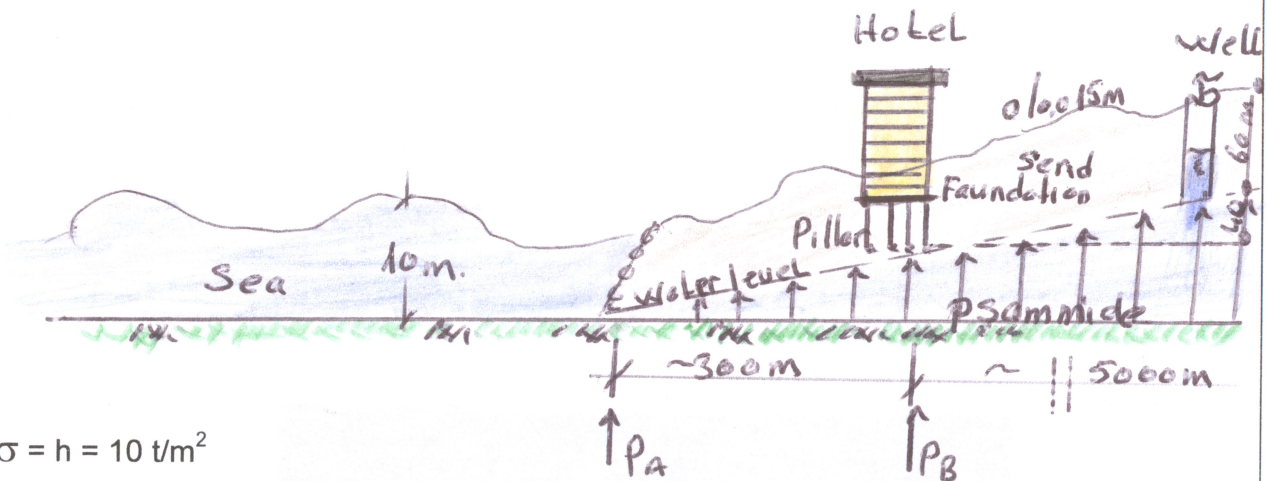 Hotel
Well
0/0,015m
60m
Send
Faundation
Pillar
10m.
Sea
Water level
PSammide
~300m
~
5000m
σ = h = 10 t/m²
PA
PB